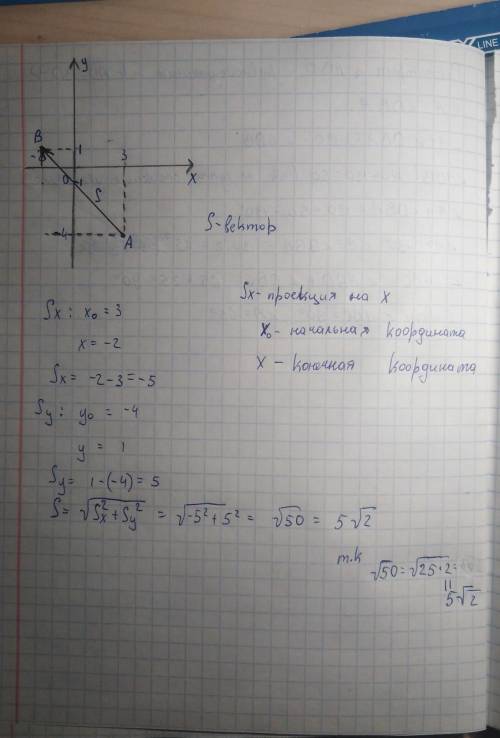 LINE
y
B
-2
1
3
0
1
X
S
-4
A
S-вектор
Sx- проекция на X
Sx: x₀ = 3
x₀- начальная координата
x = -2
x - конечная координата
Sx = -2-3=-5
Sy: y₀ = -4
y = 1
Sy= 1-(-4) = 5
S= √Sx²+Sy² = √-5²+5² = √50 = 5√2
т.к √50=√25·2=
||
5√2